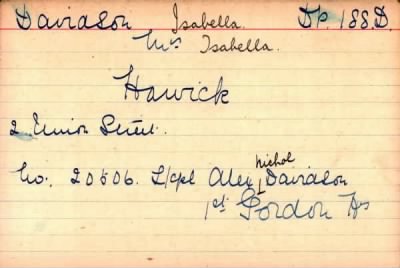 Davidson Isabella. DP. 188.D.
Mrs Isabella.
Hawick
2 Union Street.
No. 20506. L/cpl Alex Nichol Davidson
1st Gordon Hrs